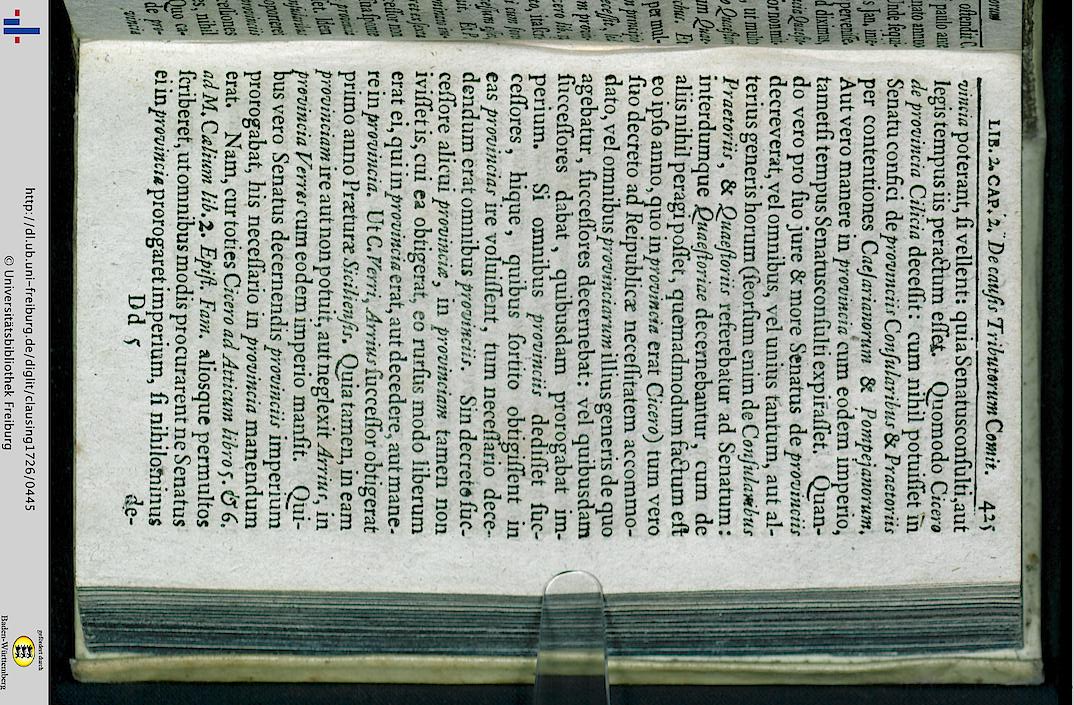 LIB. 2. CAP. 2. De causis Tributorum Comit. 425
vinciâ poterant, si vellent: quia Senatusconsulti, aut
legis tempus iis peractum esset. Quomodo Cicero
de provincia Cilicia decessit: cum nihil potuisset in
Senatu confici de provinciis Consularibus & Praetoriis
per contentiones Caesarianorum & Pompejanorum.
Aut vero manere in provincia cum eodem imperio,
tametsi tempus Senatusconsulti expirasset. Quan-
do vero pro suo jure & more Senatus de provinciis
decreverat, vel omnibus, vel unius tantum, aut al-
terius generis horum (seorsum enim de Consularibus
Praetoriis, & Quaestoriis referebatur ad Senatum:
interdumque Quaestoriae decernebantur, cum de
aliis nihil peragi posset, quemadmodum factum est
eo ipso anno, quo in provincia erat Cicero) tum vero
suo decreto ad Reipublicae necessitatem accommo-
dato, vel omnibus provinciarum illius generis de quo
agebatur, successores decernebat: vel quibusdam
successores dabat, quibusdam prorogabat im-
perium. Si omnibus provinciis dedisset suc-
cessores, hique, quibus sortito obtigissent in
eas provincias ire voluissent, tum necessario dece-
dendum erat omnibus provinciis. Sin decreto suc-
cessore alicui provinciae, in provinciam tamen non
ivisset is, cui ea obtigerat, eo rursus modo liberum
erat ei, qui in provincia erat, aut decedere, aut mane-
re in provincia. Ut C. Verri, Arrius successor obtigerat
primo anno Praeturae Siciliensis. Quia tamen, in eam
provinciam ire aut non potuit, aut neglexit Arrius, in
provincia Verres cum eodem imperio mansit. Qui-
bus vero Senatus decernendis provinciis imperium
prorogabat, his necessario in provincia manendum
erat. Nam, cur toties Cicero ad Atticum libro 5, & 6.
ad M. Caelium lib. 2. Epist. Fam. aliosque permultos
scriberet, ut omnibus modis procurarent ne Senatus
ei in provincia prorogaret imperium, si nihilominus
Dd 5 de-
http://dl.ub.uni-freiburg.de/diglit/clausing1726/0445
© Universitätsbibliothek Freiburg
gefördert durch
Baden-Württemberg